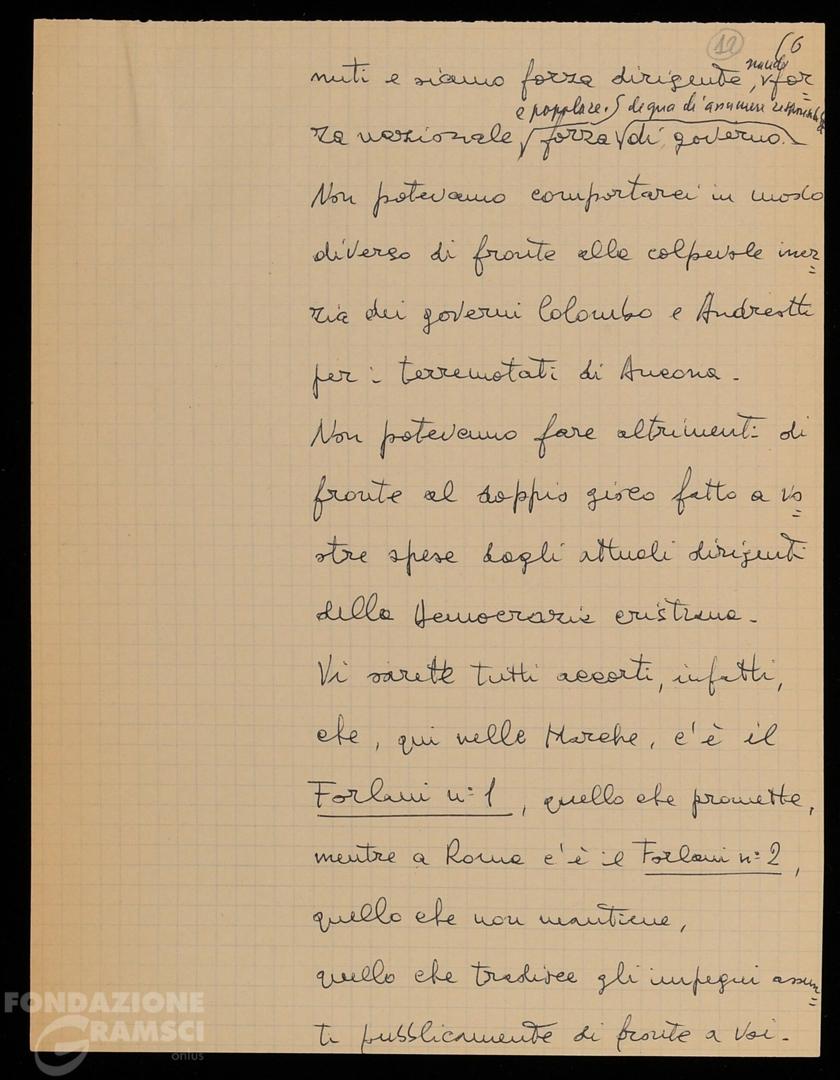 12
6
nuti e siamo forza dirigente, for=
e popolare. degna di assumere
za nazionale forza di governo.
Non potevamo comportarci in modo
diverso di fronte alla colpevole iner=
zia dei governi Colombo e Andreotti
per i terremotati di Ancona.
Non potevamo fare altrimenti di
fronte al doppio gioco fatto a vo=
stre spese dagli attuali dirigenti
della Democrazia cristiana.
Vi sarete tutti accorti, infatti,
che, qui nelle Marche, c'è il
Forlani n: 1, quello che promette,
mentre a Roma c'è il Forlani n: 2,
quello che non mantiene,
quello che tradisce gli impegni assun=
ti pubblicamente di fronte a voi.
FONDAZIONE
GRAMSCI
onlus